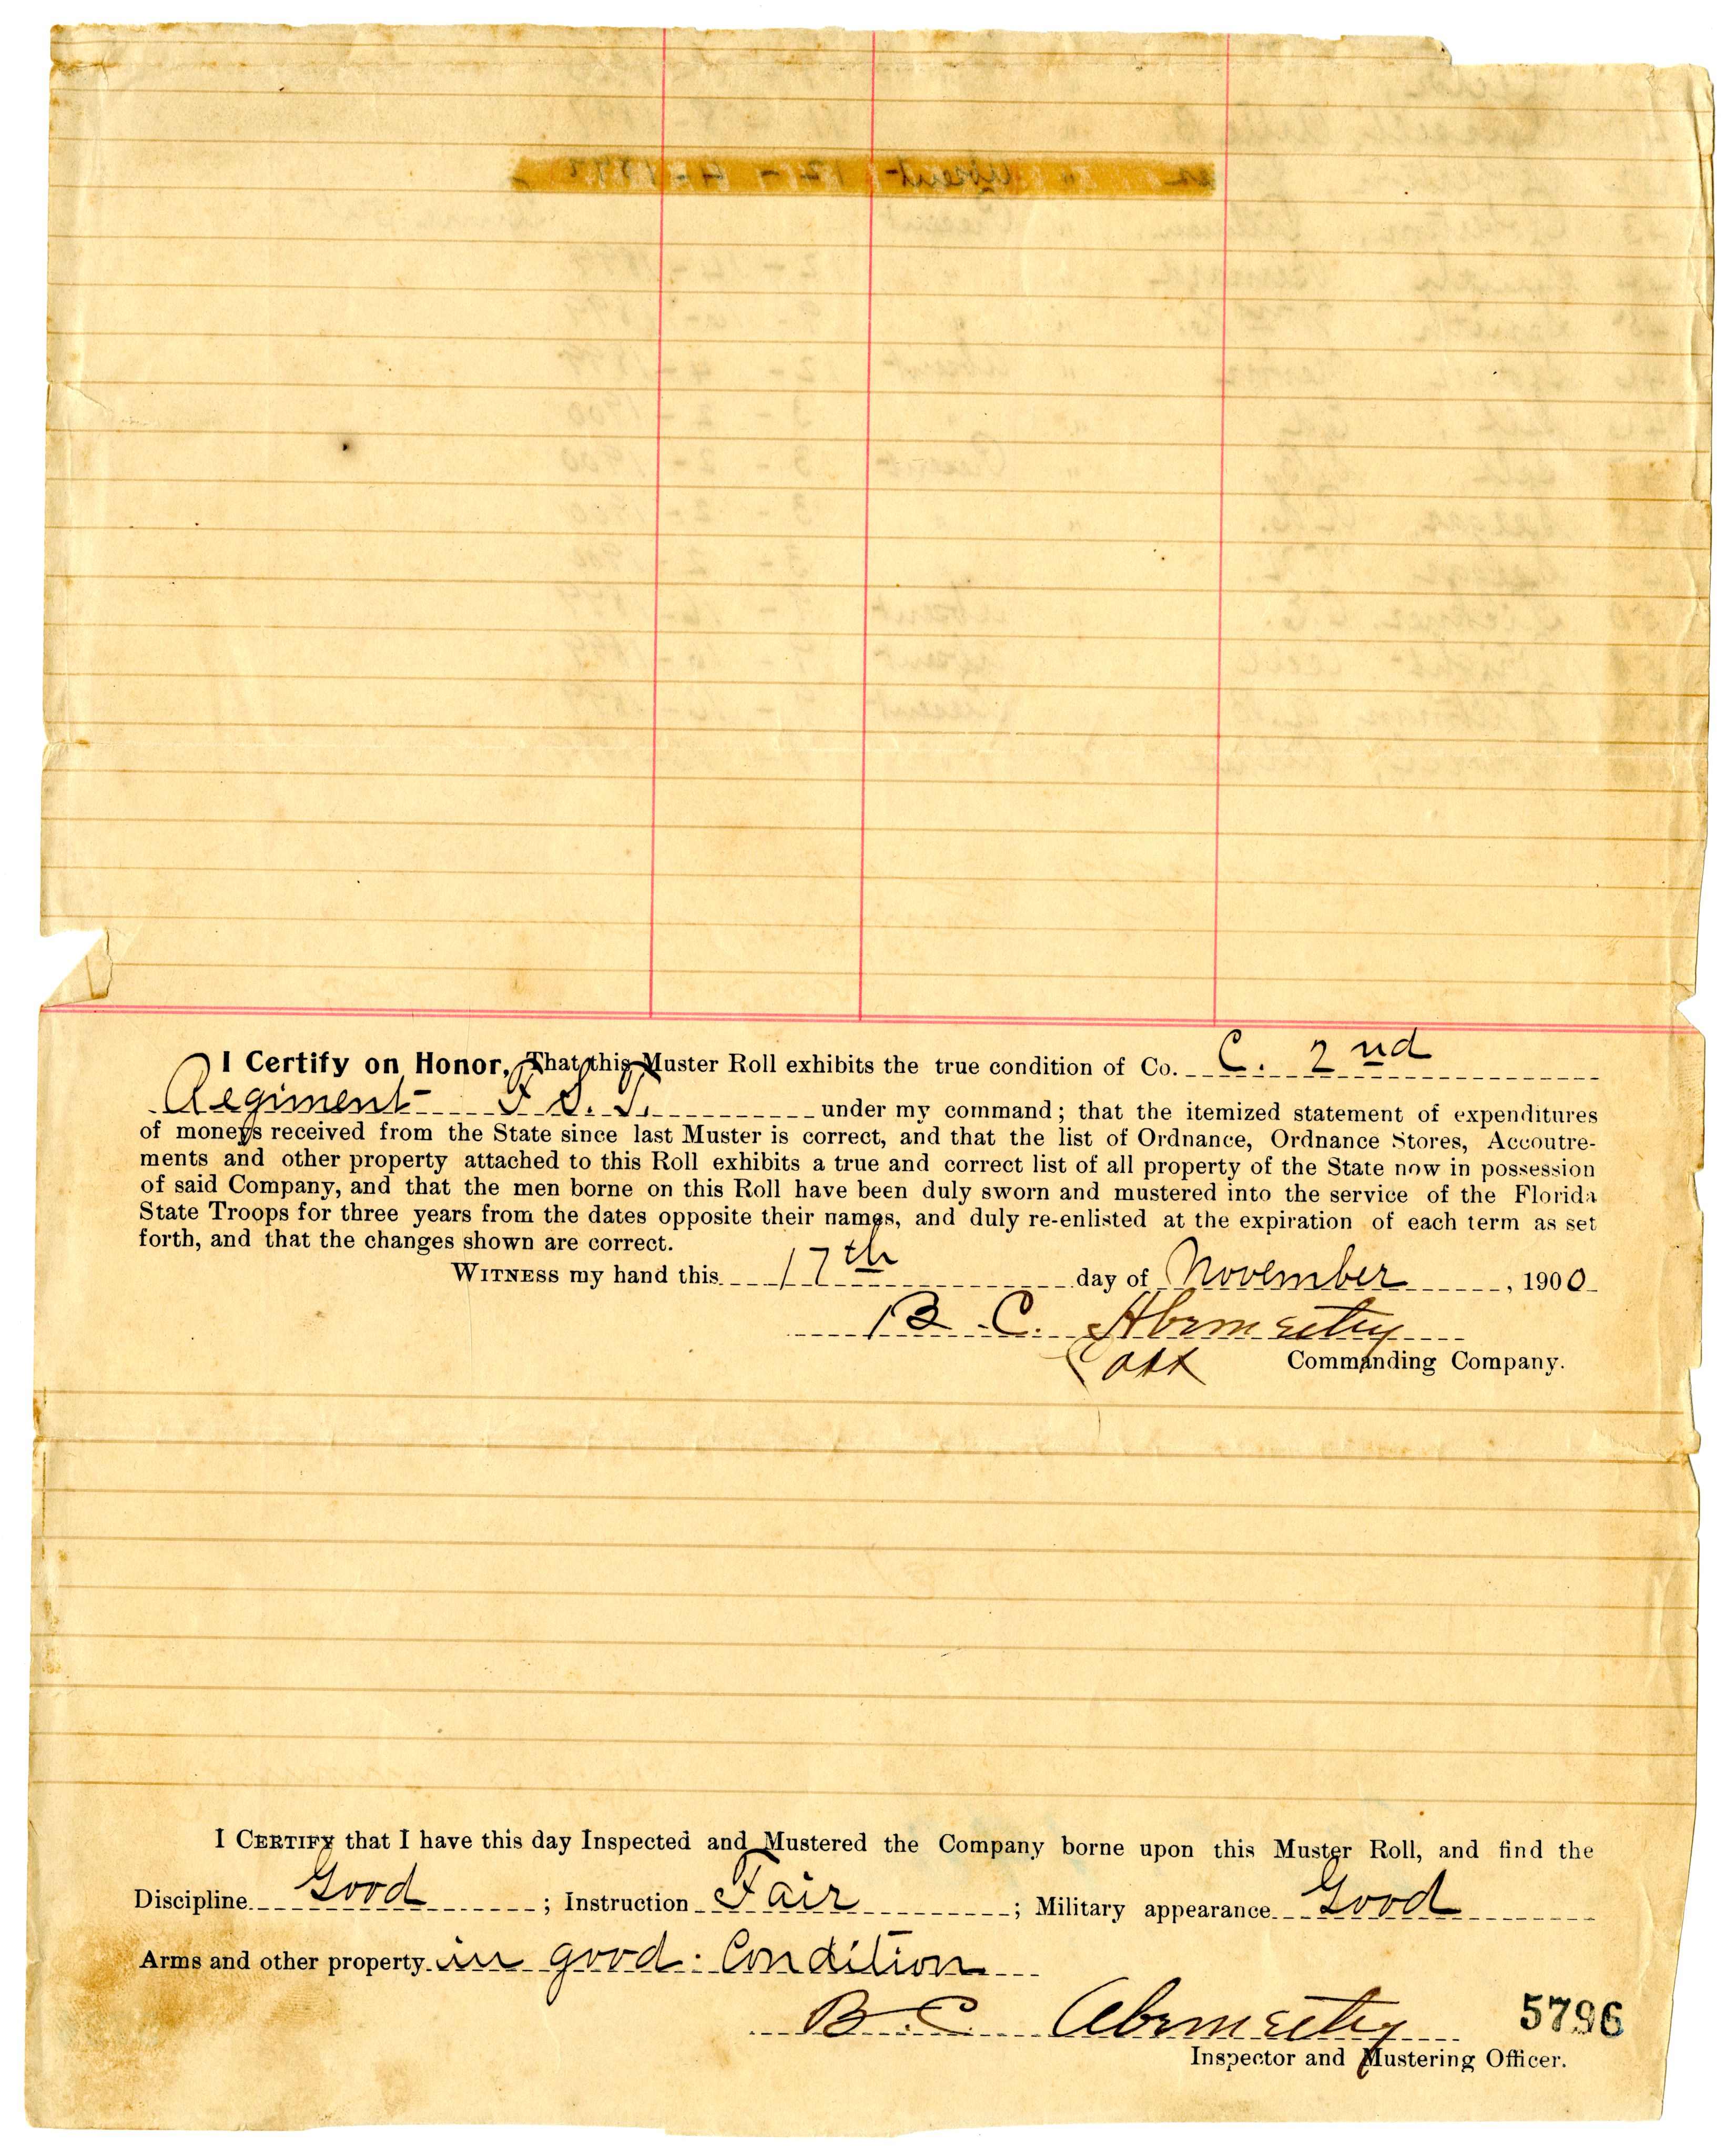 I Certify on Honor, That this Muster Roll exhibits the true condition of Co. C. 2nd
Regiment F. S. T. under my command; that the itemized statement of expenditures
of moneys received from the State since last Muster is correct, and that the list of Ordnance, Ordnance Stores, Accoutre-
ments and other property attached to this Roll exhibits a true and correct list of all property of the State now in possession
of said Company, and that the men borne on this Roll have been duly sworn and mustered into the service of the Florida
State Troops for three years from the dates opposite their names, and duly re-enlisted at the expiration of each term as set
forth, and that the changes shown are correct.
WITNESS my hand this 17th day of November, 1900
B. C.
Commanding Company.
I CERTIFY that I have this day Inspected and Mustered the Company borne upon this Muster Roll, and find the
Discipline Good; Instruction Fair; Military appearance Good
Arms and other property in good Condition
B. C.
5796
Inspector and Mustering Officer.